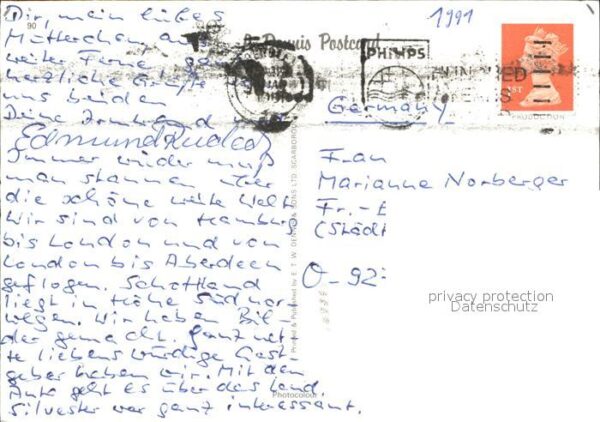 1991
90
A Dennis Postcard
PHILIPS
1ST
Dir, mein liebes
Mütterchen aus
weiter Ferne ganz
herzliche Grüße
uns beiden
Deine Irmhand und
Edmund
Immer wieder muß
man staunen über
die schöne weite Welt
Wir sind von Hamburg
bis London und von
London bis Aberdeen
geflogen. Schottland
liegt in Höhe Süd nor
wegen. Wir haben Bil-
der gemacht. Ganz net-
te liebenswürdige Gast
geber haben wir. Mit dem
Auto geht es über das Land.
Silvester war ganz interessant.
Printed & Published by E. T. W. DENNIS & SONS LTD. SCARBOROUGH
Photocolour
Germany
Frau
Marianne Norberger
Fr.-E
(Städt
O-92
privacy protection
Datenschutz